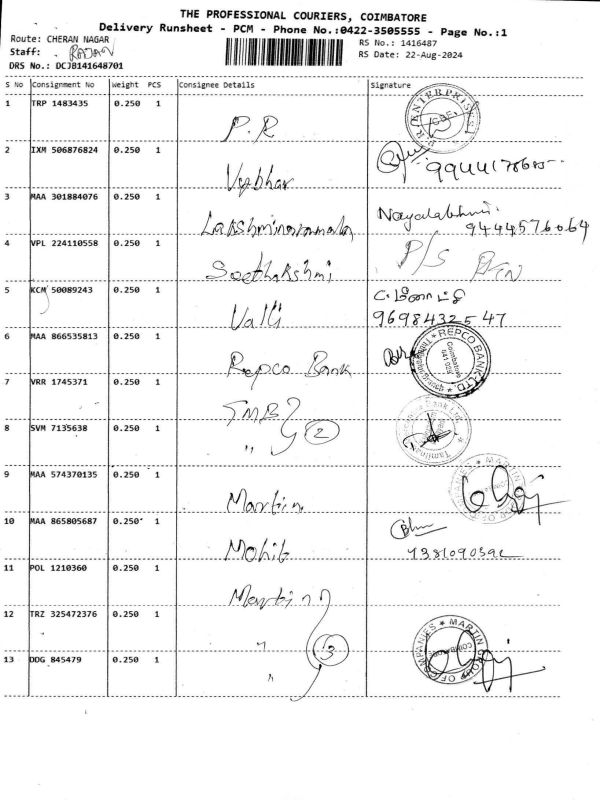 THE PROFESSIONAL COURIERS, COIMBATORE
Delivery Runsheet - PCM - Phone No.:0422-3505555 - Page No.:1
Route: CHERAN NAGAR RS No.: 1416487
Staff: RAJAN RS Date: 22-Aug-2024
DRS No.: DCJB141648701
S No Consignment No Weight PCS Consignee Details Signature
1 TRP 1483435 0.250 1 P.R
2 IXM 506876824 0.250 1 Vybhav
3 MAA 301884076 0.250 1 9444576064
4 VPL 224110558 0.250 1 Seethalakshmi P/S
5 KCM 50089243 0.250 1 Valli 9698432547
6 MAA 866535813 0.250 1 Repco Bank REPCO BANK LTD. Coimbatore
7 VRR 1745371 0.250 1 TMB
8 SVM 7135638 0.250 1 " 2
9 MAA 574370135 0.250 1 Martin
10 MAA 865805687 0.250 1 Mohit
11 POL 1210360 0.250 1 Martin
12 TRZ 325472376 0.250 1 " MARTIN GROUP OF COMPANIES
13 DDG 845479 0.250 1 " 3